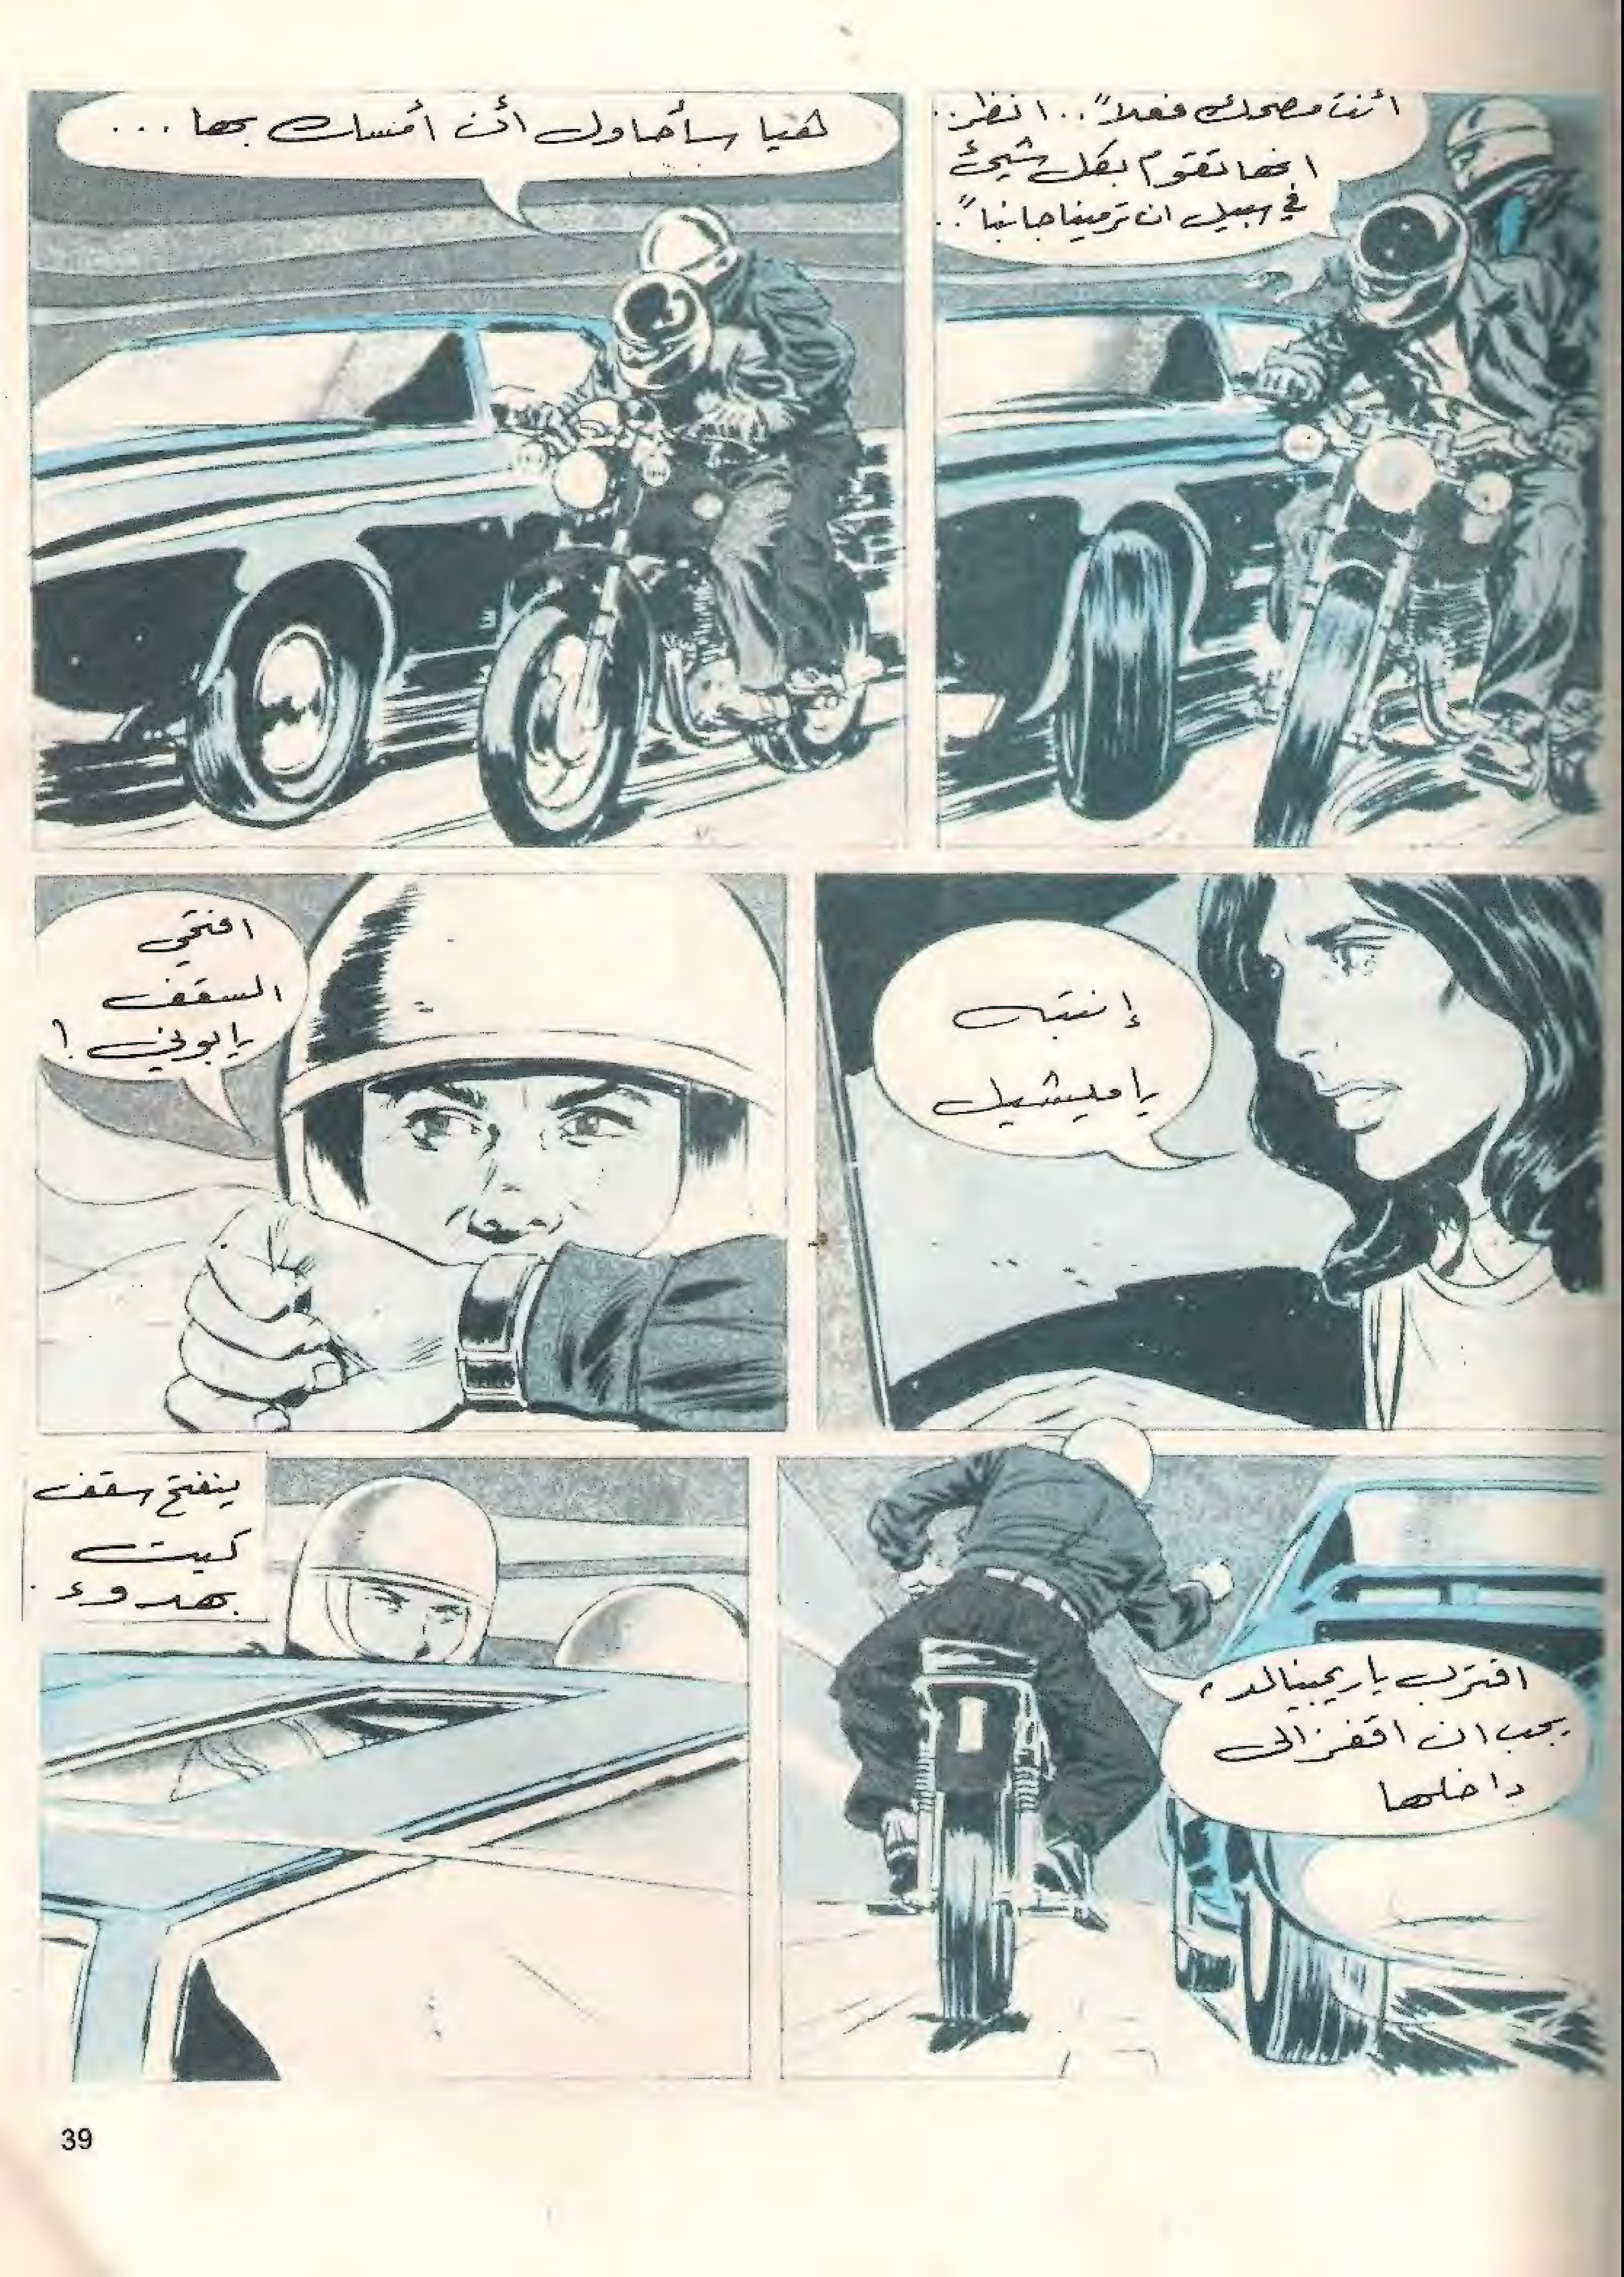 أنت مضحك فعلاً".. انظر..
انها تقوم بكل شيئ
في سبيل ان ترمينا جانبا"..
هيا سأحاول أن أمسك بها ...
إنتبه
يا ميشيل
افتحي
السقف
يا بوني !
اقترب يا ريجينالد،
يجب ان اقفز الى
داخلها
ينفتح سقف
كيت
بهدوء.
39